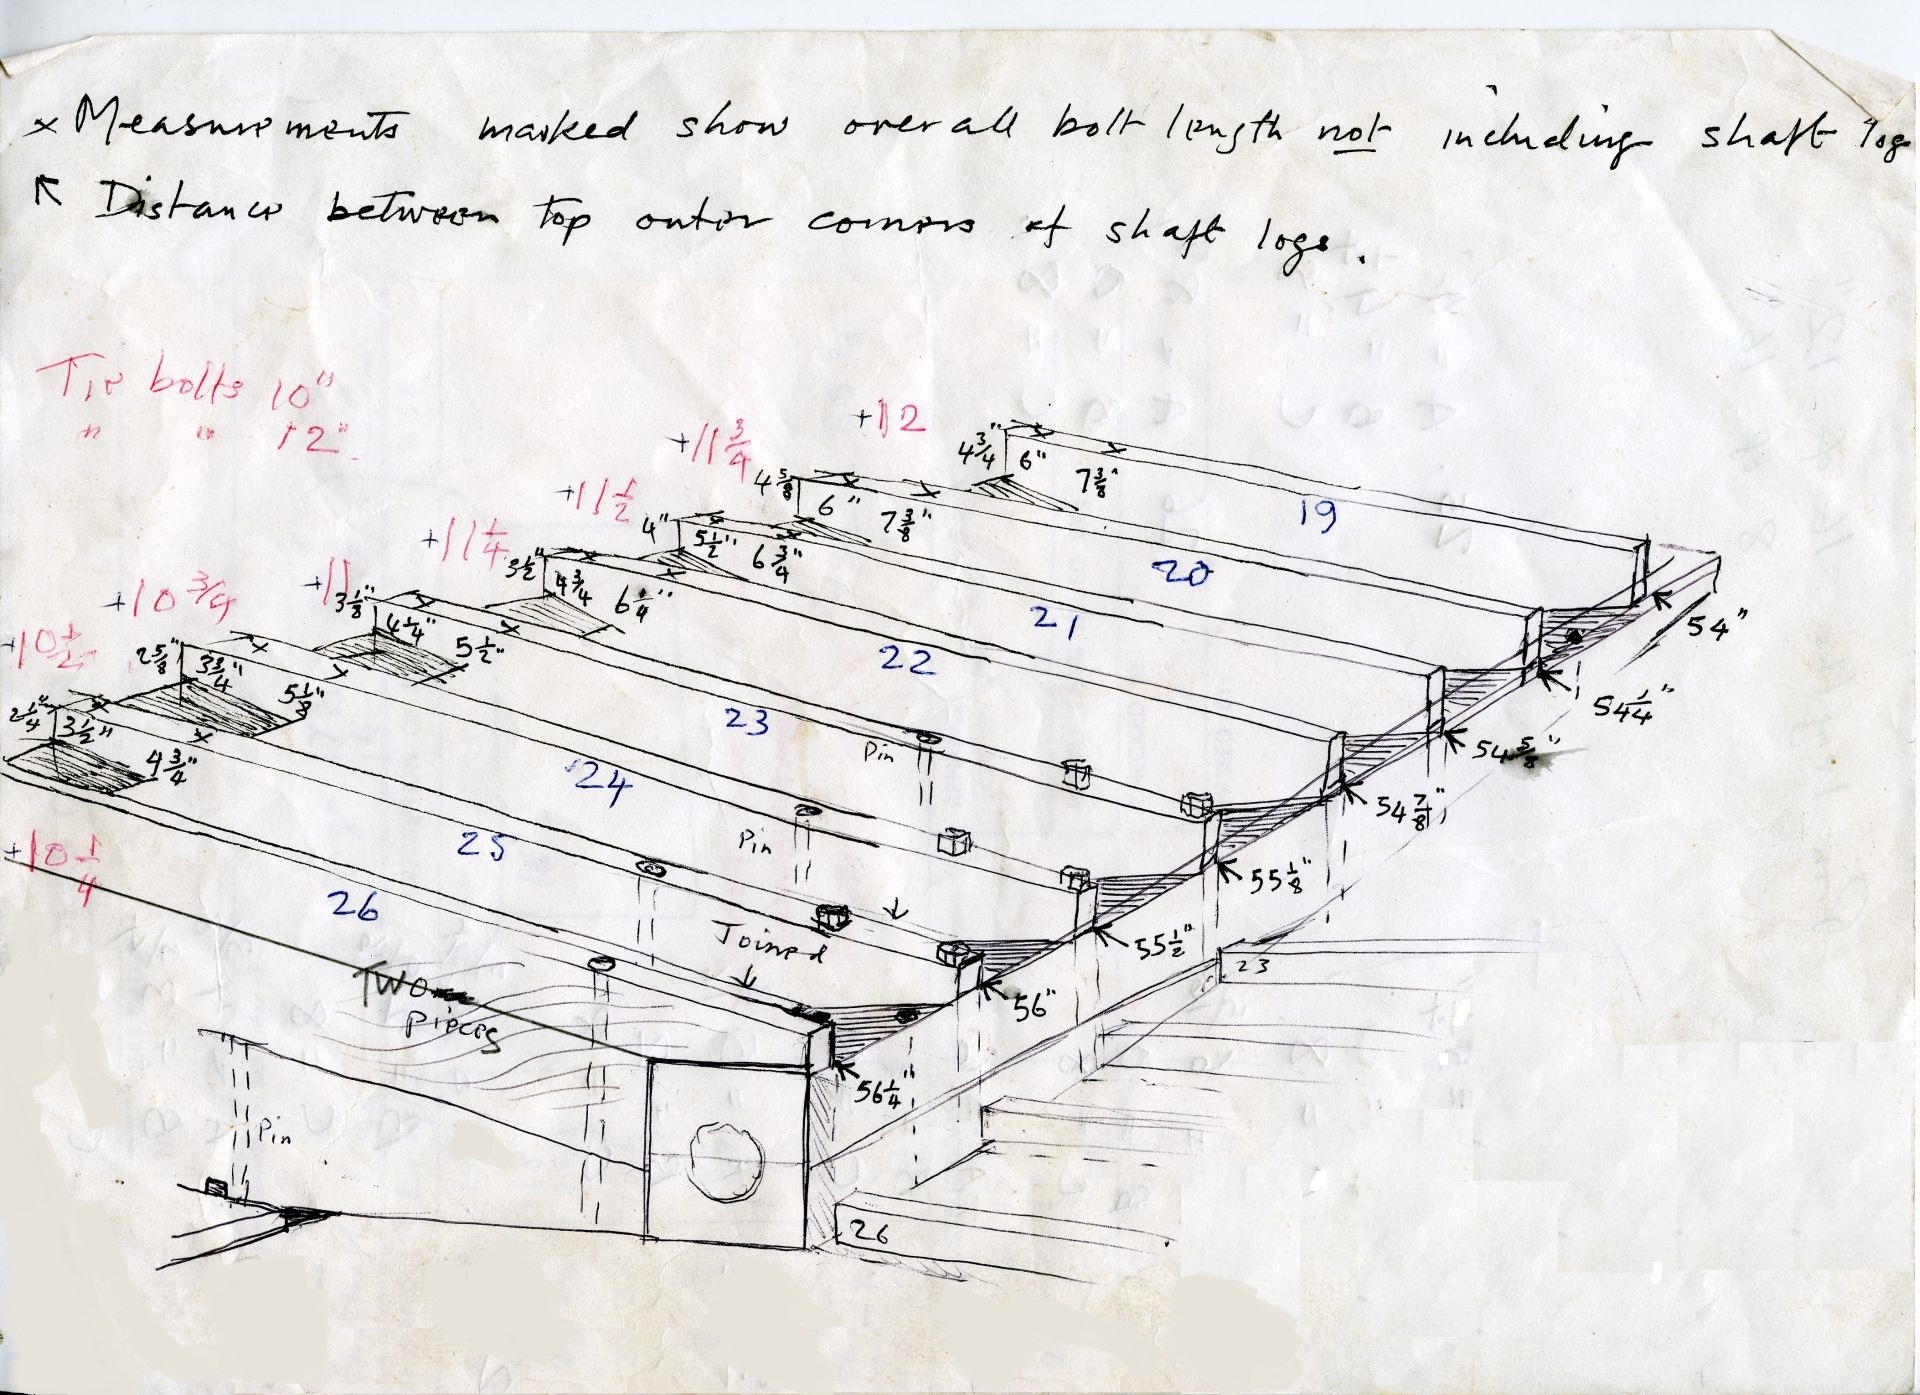 x Measurements marked show overall bolt length not including shaft log
↖ Distance between top outer corners of shaft logs.
Tie bolts 10"
" " 12"
+12
4 3/4" 6" 7 3/8"
19
+11 3/4
4 5/8 6" 7 3/8"
20
+11 1/2
4" 5 1/2" 6 3/4"
21
+11 1/4
3 1/2" 4 3/4 6 1/4"
22
+11
3 1/8" 4 1/4" 5 1/2"
23
+10 3/4
2 5/8" 3 3/4" 5 1/8"
24
+10 1/2
2 1/4" 3 1/2" 4 3/4"
25
+10 1/4
26
54"
54 1/4"
54 5/8"
54 7/8"
55 1/8"
55 1/2"
56"
56 1/4"
Pin
Pin
Joined
Two
Pieces
Pin
23
26